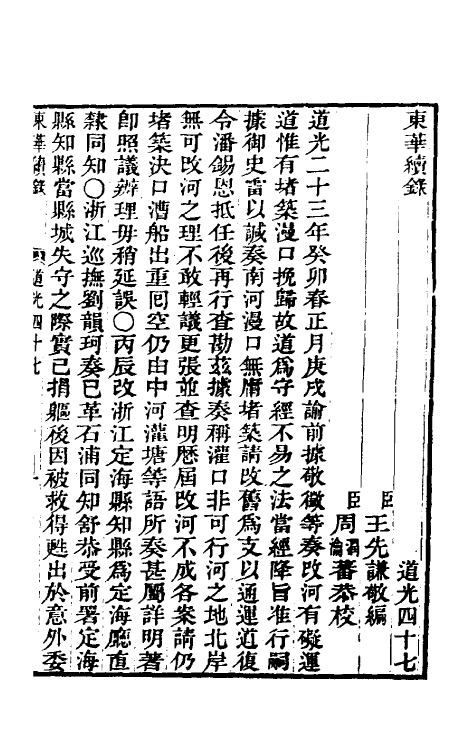 東華續錄
道光四十七
臣王先謙敬編
臣周潤蕃周渝蕃恭校
道光二十三年癸卯春正月庚戌諭前據敬徵等奏改河有礙運
道惟有堵築漫口挽歸故道爲守經不易之法當經降旨准行嗣
據御史雷以諴奏南河漫口無庸堵築請改舊爲支以通運道復
令潘錫恩抵任後再行查勘茲據奏稱灌口非可行河之地北岸
無可改河之理不敢輕議更張並查明歷屆改河不成各案請仍
堵築決口漕船出重囘空仍由中河灌塘等語所奏甚屬詳明著
卽照議辦理毋稍延誤〇丙辰改浙江定海縣知縣爲定海廳直
隸同知〇浙江巡撫劉韻珂奏已革石浦同知舒恭受前署定海
縣知縣當縣城失守之際實已捐軀後因被救得甦出於意外委
東華續錄 道光四十七 一